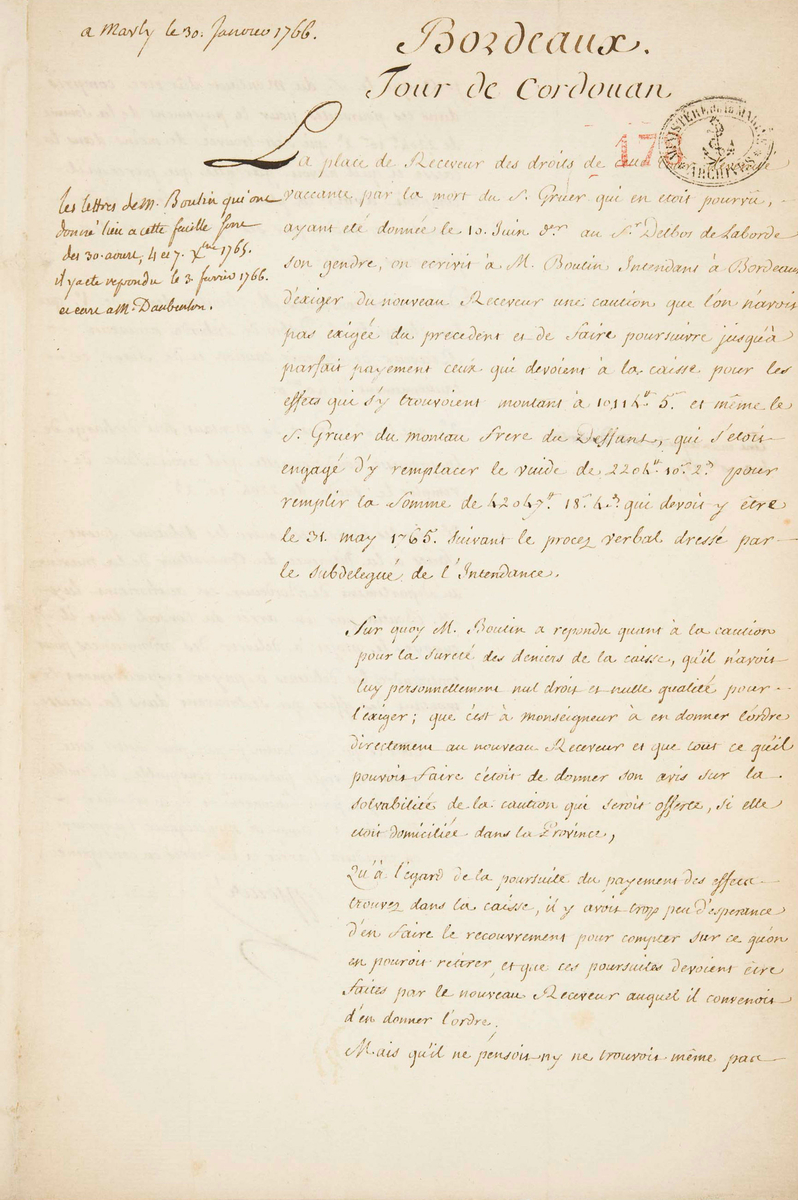 a Marly le 30. Janvier 1766.
Bordeaux.
Tour de Cordouan
MINISTÈRE de la MARINE
ARCHIVES
17
les lettres de M. Boutin qui ont
donné lieu a cette feuille sont
des 30. aoust, 4 et 7. Xbre 1765.
il y a eté repondu le 3. fevrier 1766.
et ecrit a Mr. Daubenton.
La place de Receveur des droits de
vaccante par la mort du S. Gruer qui en etoit pourvu,
ayant eté donnée le 10. Juin der. au Sr. Delbos de Laborde
son gendre, on ecrivit à M. Boutin Intendant à Bordeaux
d'exiger du nouveau Receveur une caution que l'on n'avoit
pas exigée du precedent et de faire poursuivre jusqu'à
parfait payement ceux qui devoient à la caisse pour les
effets qui s'y trouvoient montant à 10114# 5s. et même le
S. Gruer du montau frere du Deffunt, qui s'etoit
engagé d'y remplacer le vuide de 2204# 10s. 2d pour
remplir la somme de 42047# 18s. 4d. qui devoit y être
le 31. may 1765. suivant le procez verbal dressé par
le subdelegué de l'Intendance.
Sur quoy M. Boutin a repondu quant à la caution
pour la sureté des deniers de la caisse, qu'il n'avoit
luy personnellement nul droit et nulle qualité pour
l'exiger; que c'est à monseigneur à en donner l'ordre
directement au nouveau Receveur et que tout ce qu'il
pouvoit faire c'étoit de donner son avis sur la
solvabilité de la caution qui seroit offerte, si elle
etoit domiciliée dans la Province,
Qu'à l'egard de la poursuite du payement des effets
trouvez dans la caisse, il y avoit trop peu d'esperance
d'en faire le recouvrement pour compter sur ce qu'on
en pouroit retirer, et que ces poursuites devoient être
faites par le nouveau Receveur auquel il convenoit
d'en donner l'ordre.
Mais qu'il ne pensoit ny ne trouvoit même pas